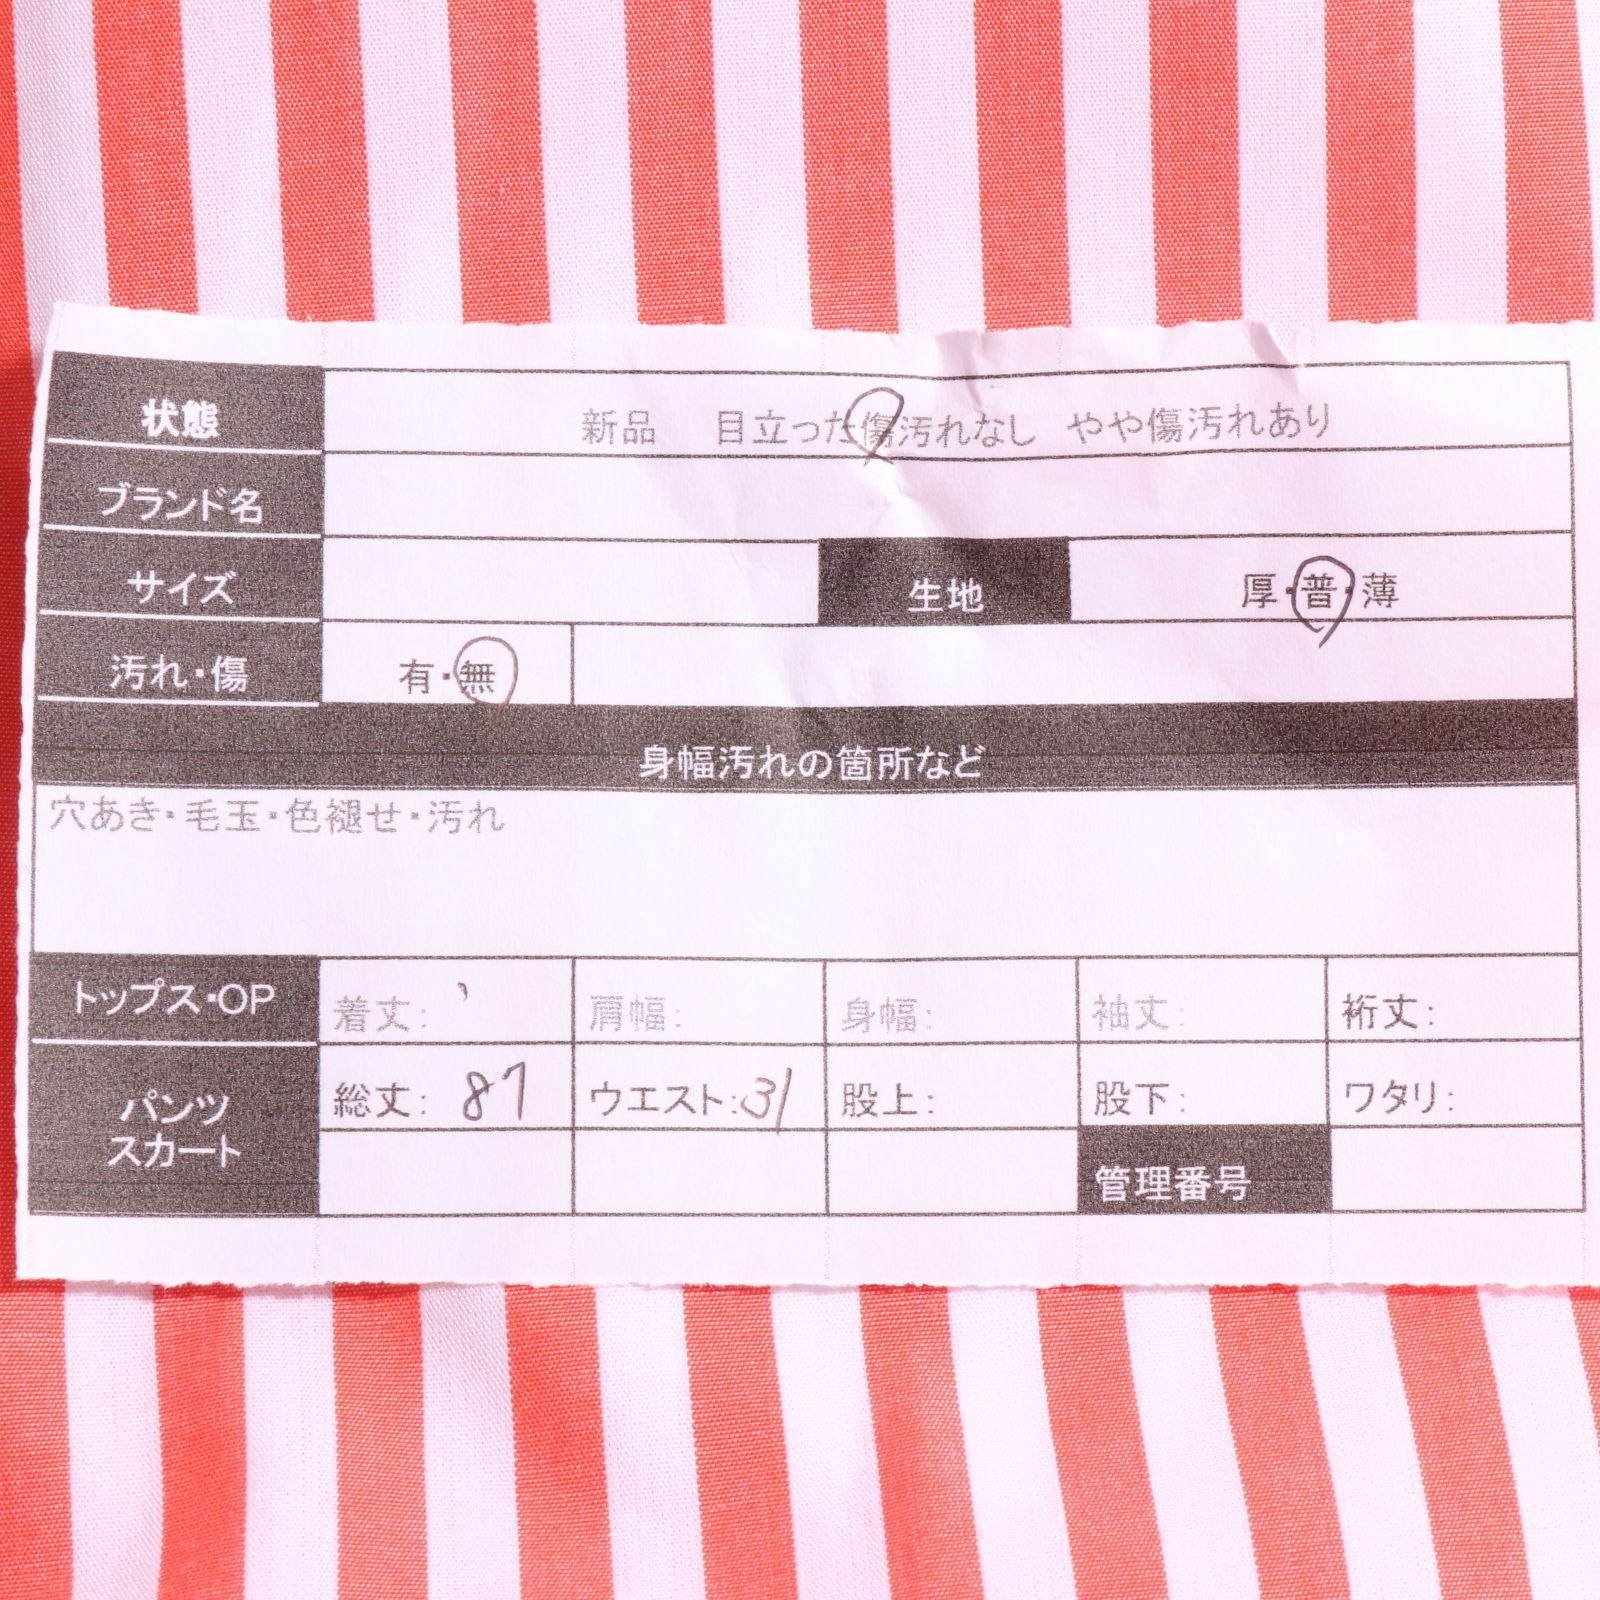 状態 新品 目立った傷汚れなし やや傷汚れあり
ブランド名
サイズ 生地 厚・普・薄
汚れ・傷 有・無
身幅汚れの箇所など
穴あき・毛玉・色褪せ・汚れ
トップス・OP 着丈: 肩幅: 身幅: 袖丈: 裄丈:
パンツ 総丈: 87 ウエスト:31 股上: 股下: ワタリ:
スカート 管理番号